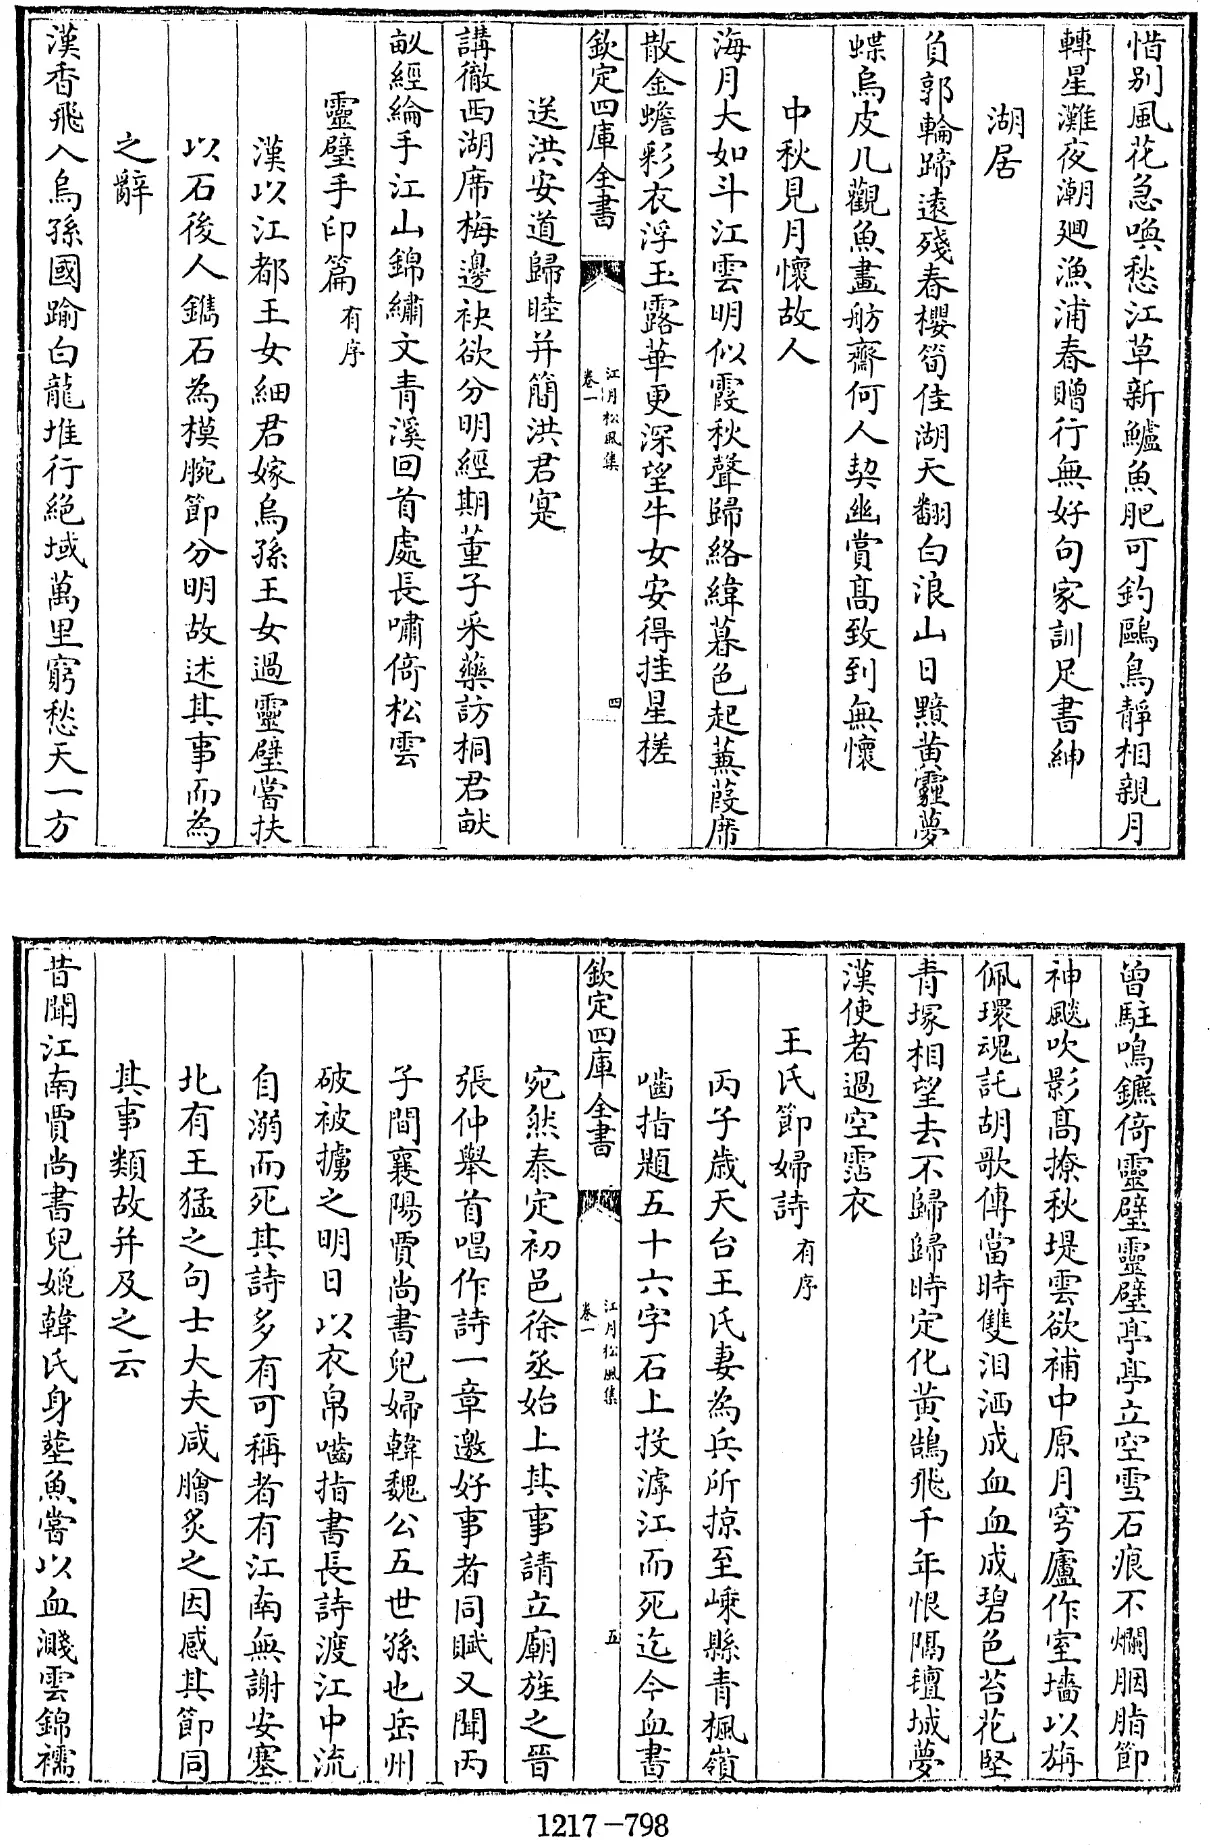 惜别風花急喚愁江草新鱸魚肥可釣鷗鳥靜相親月
轉星灘夜潮廻漁浦春贈行無好句家訓足書紳
湖居
負郭輪蹄逺殘春櫻筍佳湖天翻白浪山日黯黄霾夢
蝶烏皮几觀魚畫舫齋何人契幽賞髙致到無懷
中秋見月懷故人
海月大如斗江雲明似霞秋聲歸絡緯暮色起蒹葭席
散金蟾彩衣浮玉露華更深望牛女安得挂星槎
欽定四庫全書
江月松風集
卷一
四
送洪安道歸睦并簡洪君寔
講徹西湖席梅邊袂欲分明經期董子采藥訪桐君猷
畝經綸手江山錦繡文青溪回首處長嘯倚松雲
靈璧手印篇有序
漢以江都王女細君嫁烏孫王女過靈璧嘗扶
以石後人鐫石為模腕節分明故述其事而為
之辭
漢香飛入烏孫國踰白龍堆行絶域萬里窮愁天一方
曾駐鳴鑣倚靈璧靈璧亭亭立空雪石痕不爛胭脂節
神飈吹影髙撩秋堤雲欲補中原月穹廬作室墻以旃
佩環魂託胡歌傳當時雙泪洒成血血成碧色苔花堅
青塚相望去不歸歸時定化黄鵠飛千年恨隔氊城夢
漢使者過空霑衣
王氏節婦詩有序
丙子歳天台王氏妻為兵所掠至嵊縣青楓嶺
嚙指題五十六字石上投滹江而死迄今血書
欽定四庫全書
江月松風集
卷一
五
宛然泰定初邑徐丞始上其事請立廟旌之晉
張仲舉首唱作詩一章邀好事者同賦又聞丙
子間襄陽賈尚書兒婦韓魏公五世孫也岳州
破被擄之明日以衣帛嚙指書長詩渡江中流
自溺而死其詩多有可稱者有江南無謝安塞
北有王猛之句士大夫咸膾炙之因感其節同
其事類故并及之云
昔聞江南賈尚書兒媲韓氏身塟魚嘗以血濺雲錦襦
1217-798